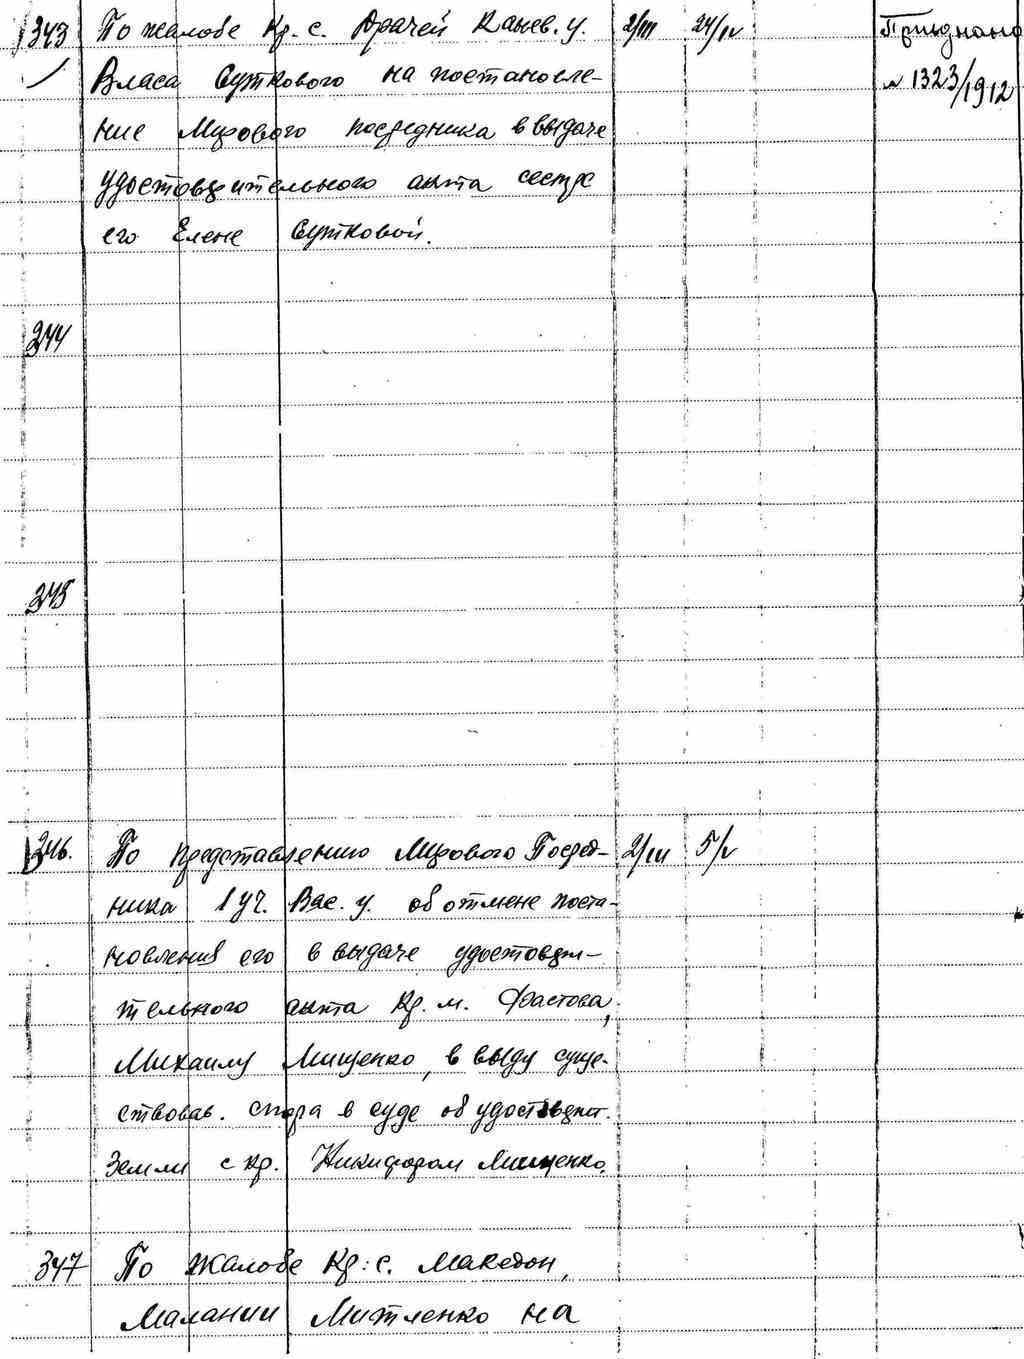 343 По жалобе Кр. с. Драчей Канев. у. 2/III 24/IV Приєднано
Власа Суткового на постановле- № 1323/1912
ние Мирового посредника в выдаче
удостоверительного акта сестре
его Елене Сутковой.
344
345
346. По представлению Мирового Посред- 2/III 5/V
ника 1 уч. Вас. у. об отмене поста-
новления его в выдаче удостовери-
тельного акта Кр. м. Фастова,
Михаилу Мищенко, в виду суще-
ствовав. спора в суде об удостоверит.
земли с кр. Никифором Мищенко.
347 По жалобе Кр: с. Македон,
Малании Митленко на